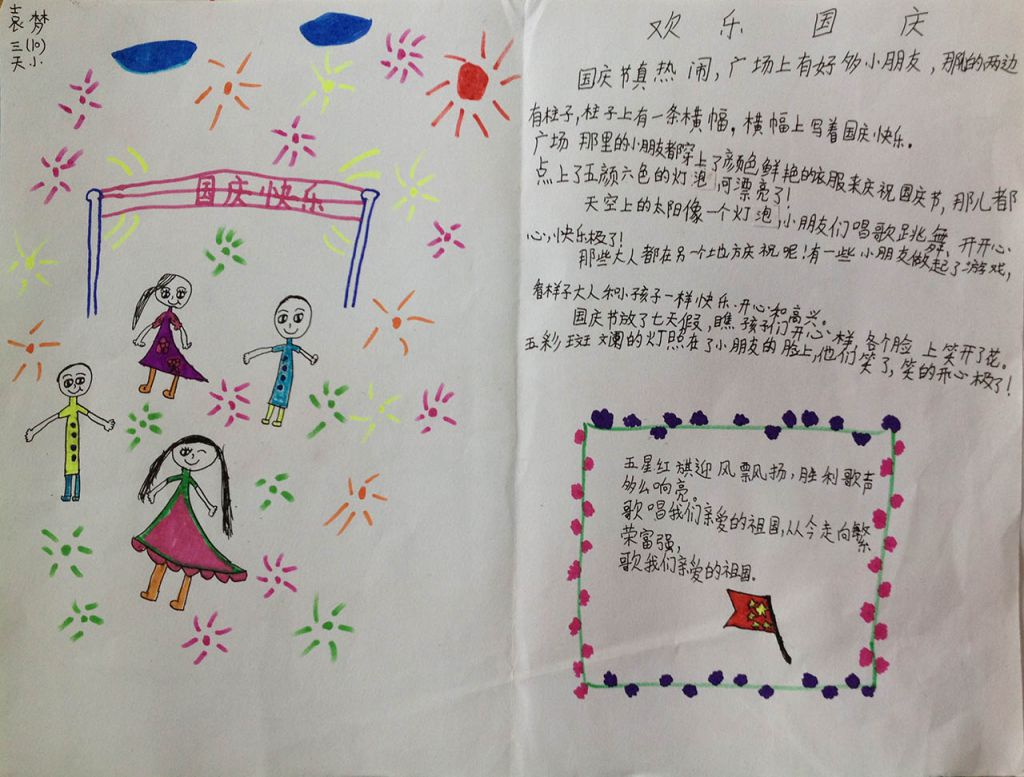 袁梦
三(10)
天小
国庆快乐
欢乐国庆
国庆节真热闹，广场上有好多小朋友，那儿的两边
有柱子，柱子上有一条横幅，横幅上写着国庆快乐。
广场那里的小朋友都穿上了颜色鲜艳的衣服来庆祝国庆节，那儿都
点上了五颜六色的灯泡可漂亮了！
天空上的太阳像一个灯泡，小朋友们唱歌跳舞、开开心
心，快乐极了！
那些大人都在另个地方庆祝呢！有一些小朋友做起了游戏，
看样子大人和小孩子一样快乐、开心和高兴。
国庆节放了七天假，瞧孩子们开心样，各个脸上笑开了花。
五彩斑斓的灯照在了小朋友的脸上，他们笑了，笑的开心极了！
五星红旗迎风飘扬，胜利歌声
多么响亮。
歌唱我们亲爱的祖国，从今走向繁
荣富强，
歌我们亲爱的祖国.